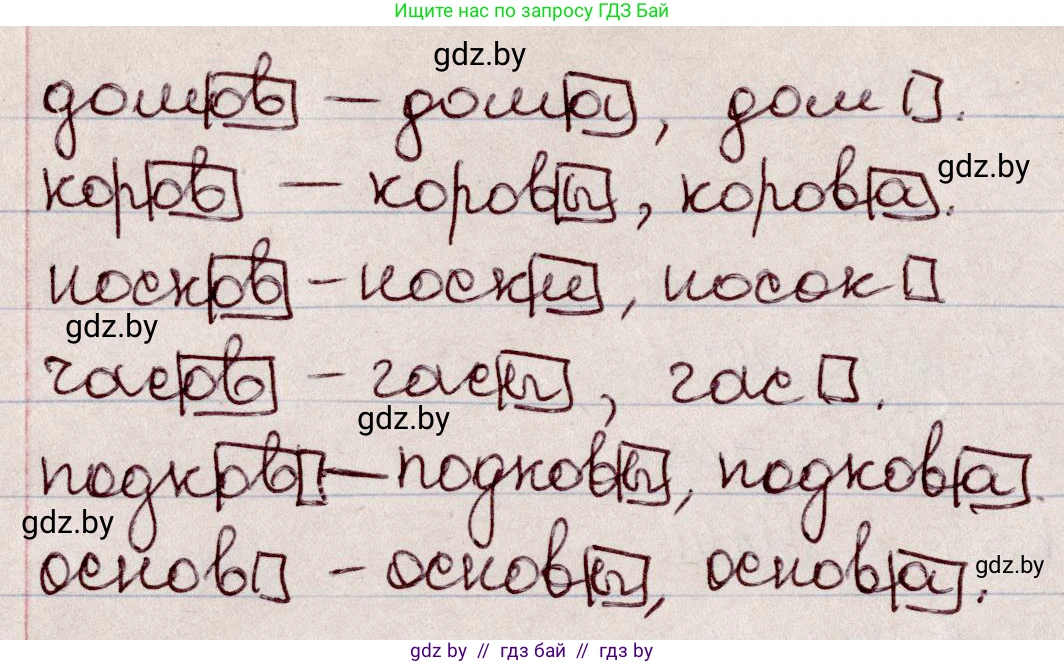 Ищите нас по запросу ГДЗ Бай
gdz.by
домов – дома, дом .
коров – коровы, корова.
gdz.by
носков – носки, носок
gdz.by
часов – часы, час .
gdz.by
подков – подковы, подкова
gdz.by
основ – основы, основа.
gdz.by
gdz.by // гдз бай // гдз by